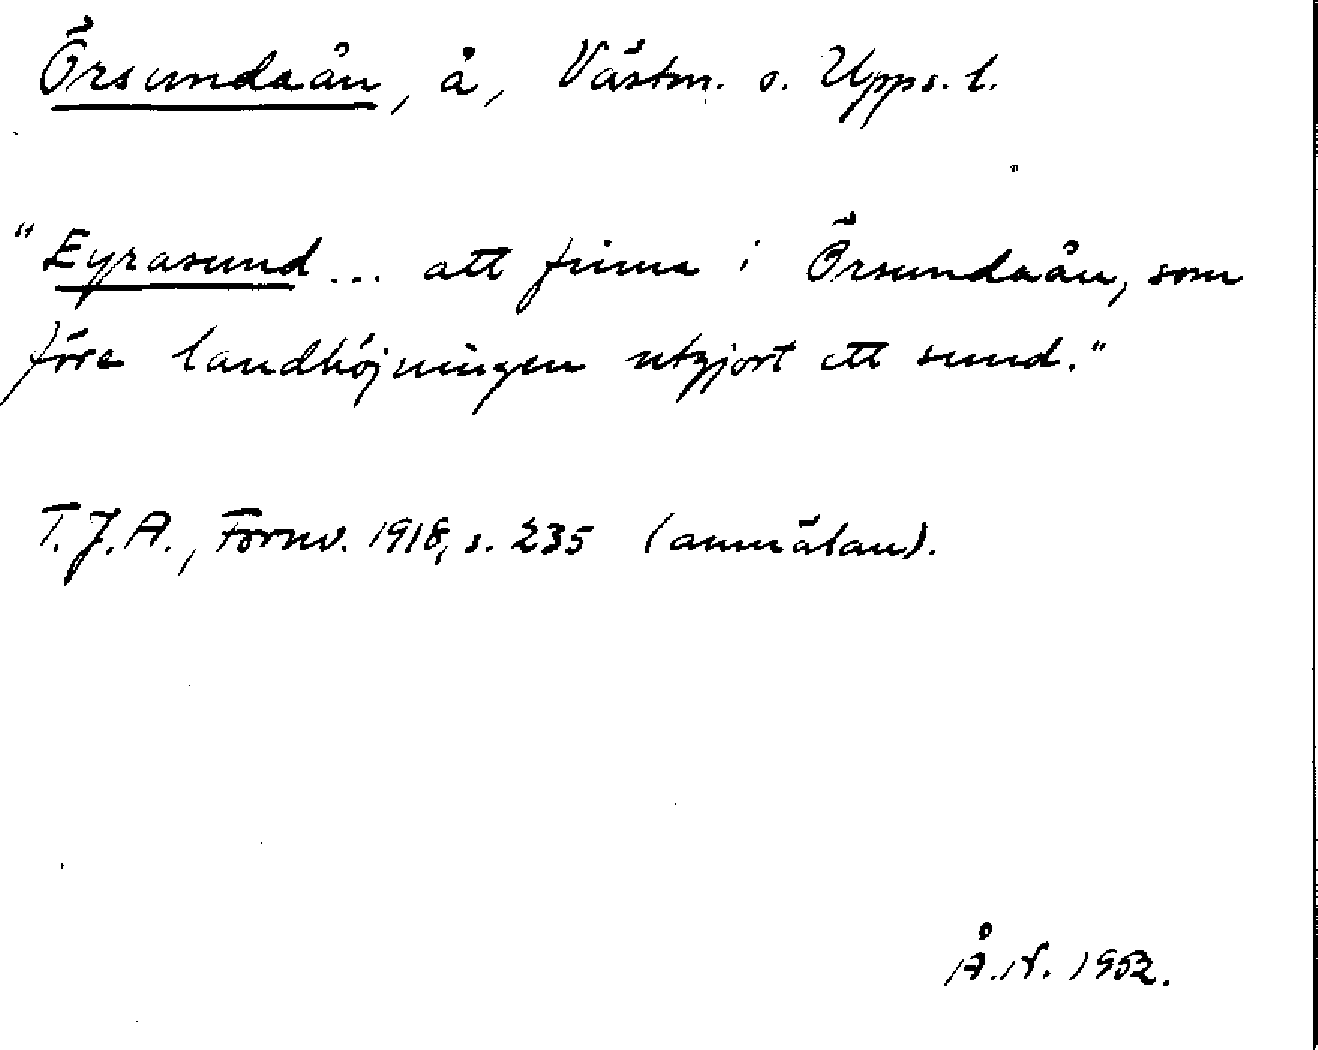 Örsundaån, å, Västm. o. Upps. l.
"Eyrasund... att finna i Örsundaån, som
före landhöjningen utgjort ett sund."
T.J.A., Fornv. 1918, s. 235 (anmälan).
Å.N. 1952.